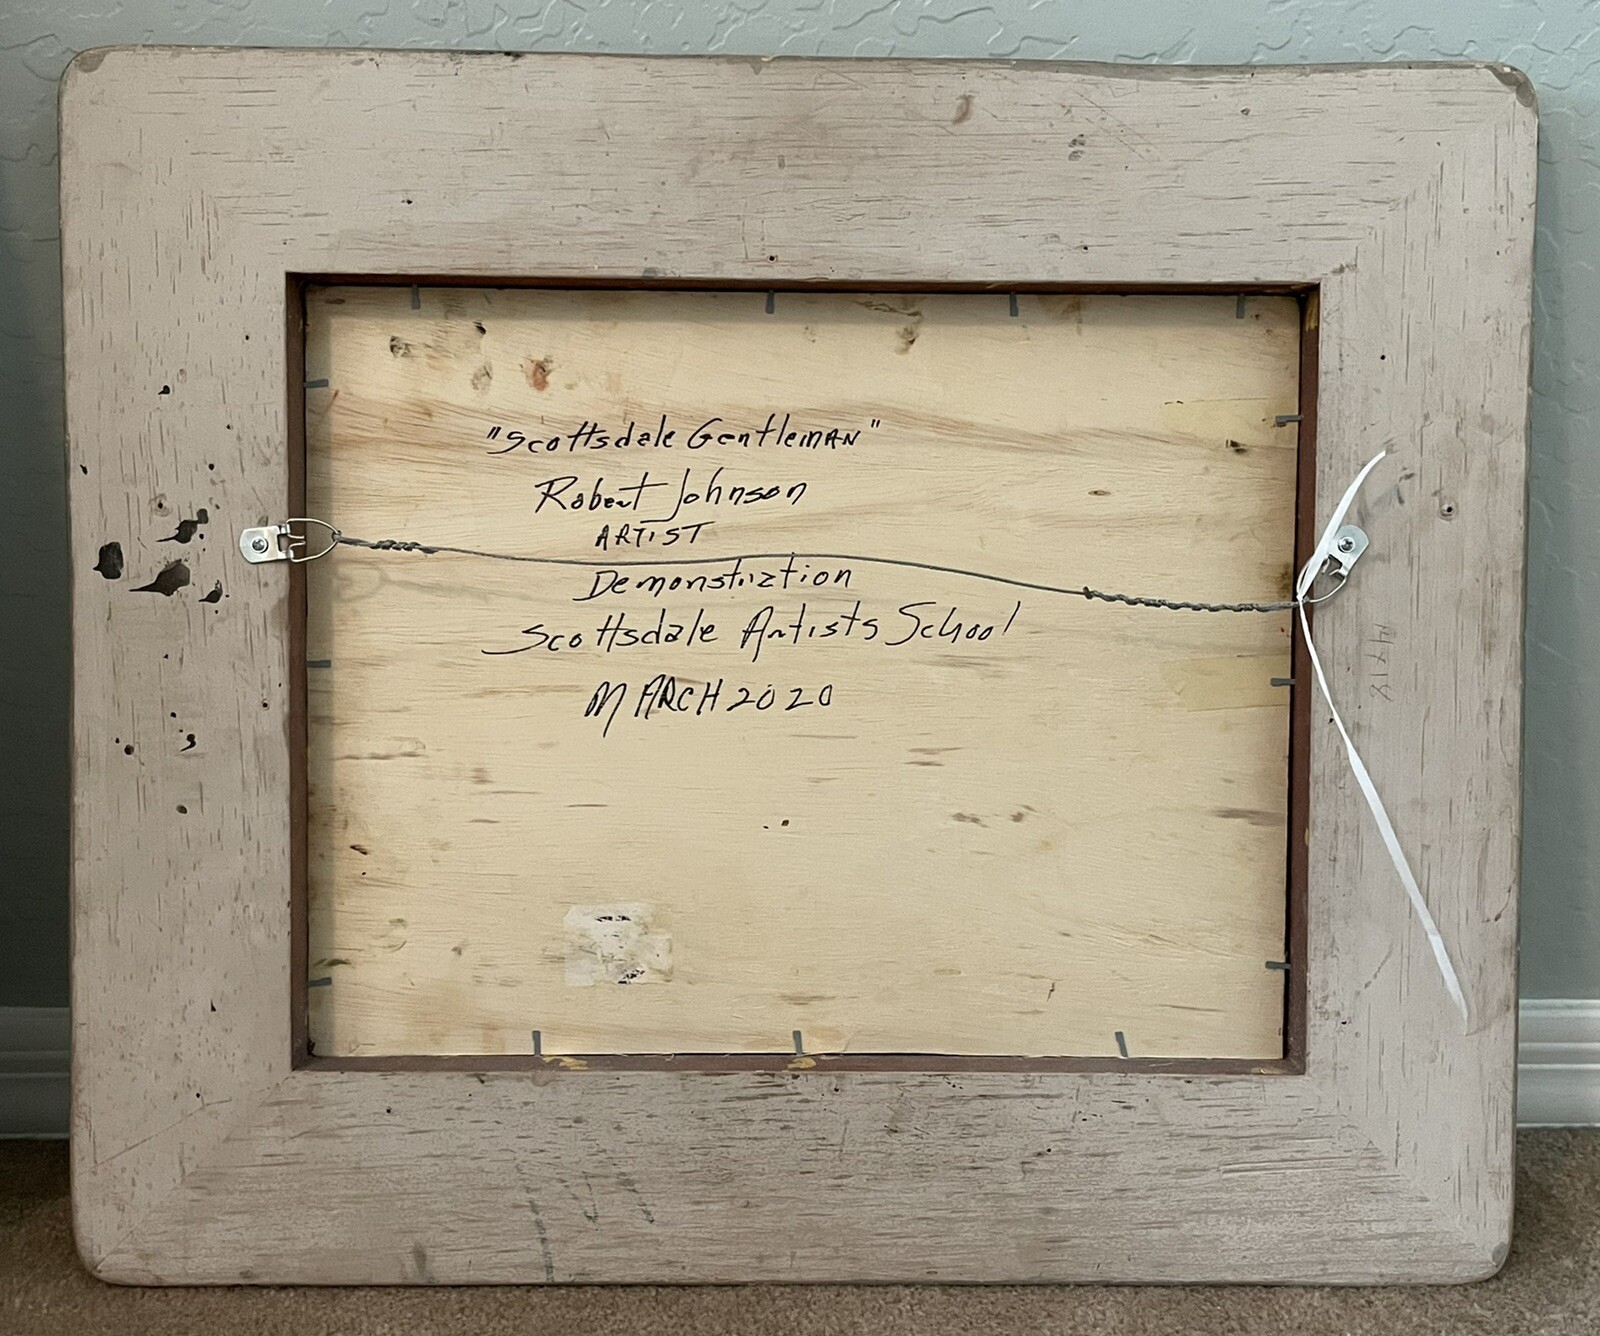 "Scottsdale Gentleman"
Robert Johnson
ARTIST
Demonstration
Scottsdale Artists School
MARCH 2020